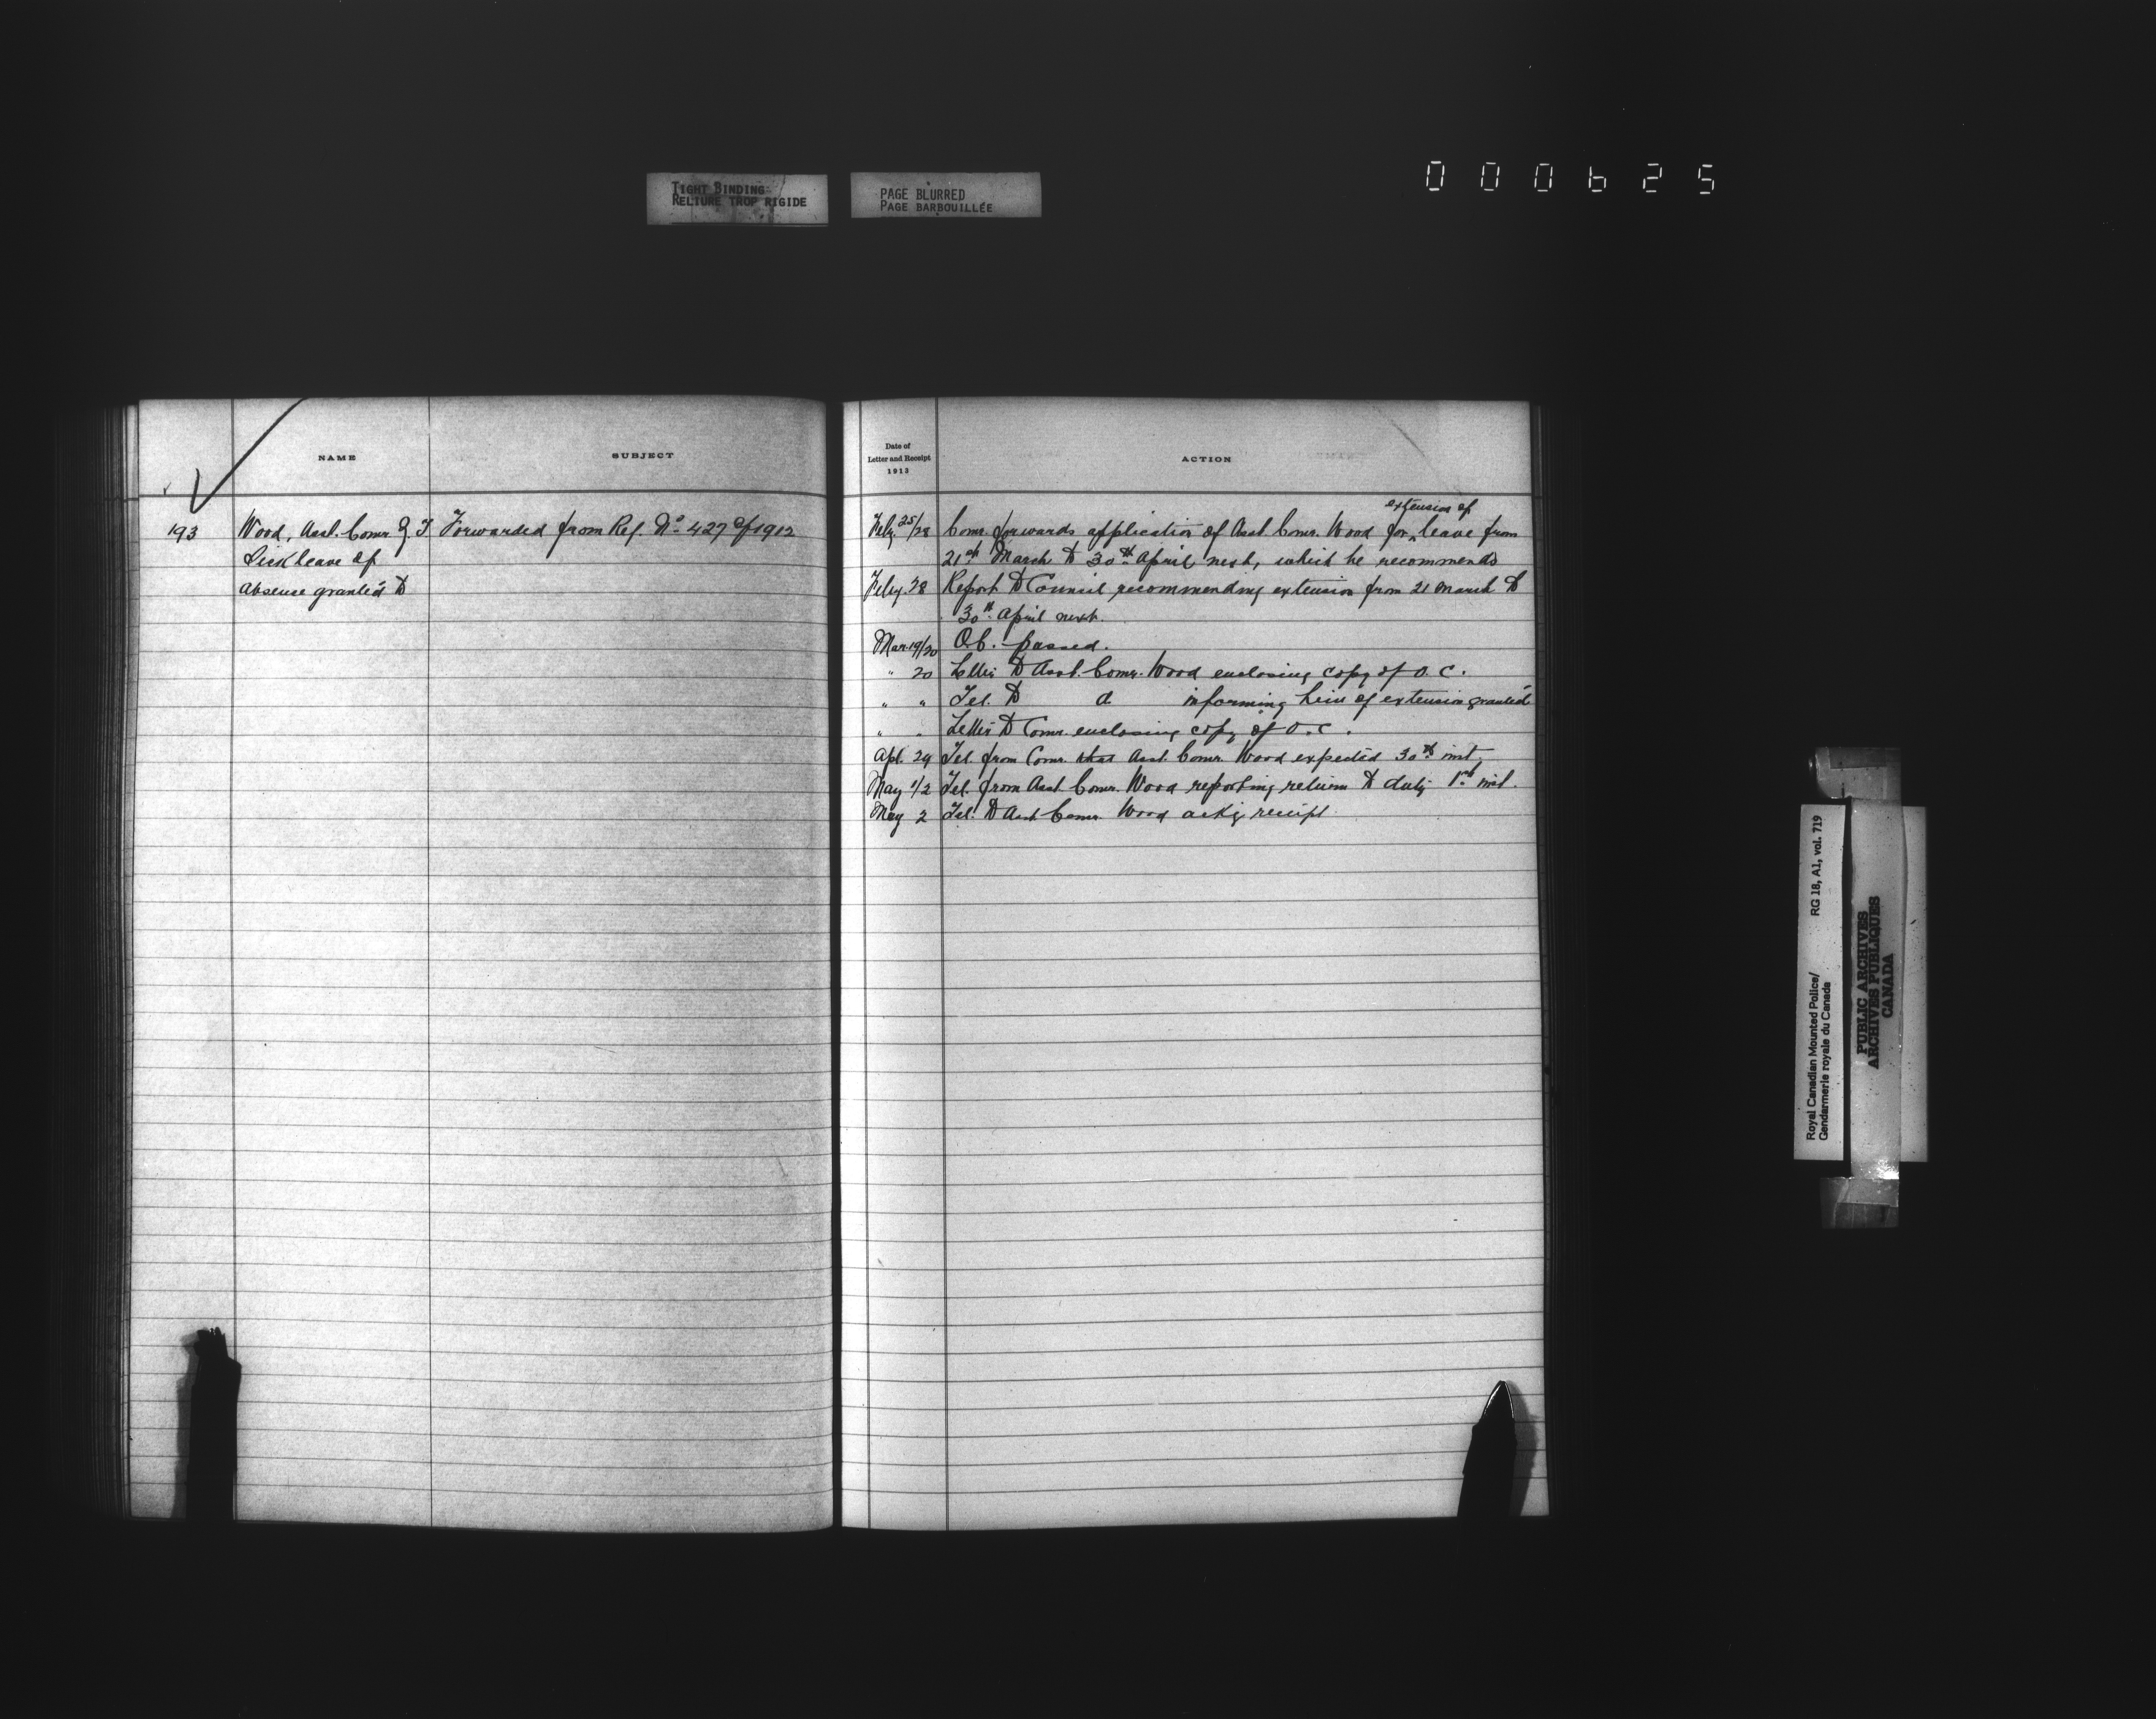 TIGHT BINDING
RELIURE TROP RIGIDE
PAGE BLURRED
PAGE BARBOUILLÉE
000625
NAME
SUBJECT
193
Wood, Asst. Comr. Z. T.
Forwarded from Ref. No. 427 of 1912
Sick leave of
absence granted to
Date of
Letter and Receipt
1913
ACTION
extension of
Feby. 25/28 Comr. forwards application of Asst. Comr. Wood for ^ leave from
21st March to 30th April next, which he recommends
Feby. 28 Report to Council recommending extension from 21 March to
30th April next.
Mar. 19/20 O.C. passed.
" 20 Letter to Asst. Comr. Wood enclosing copy of O.C.
" " Tel. to do informing him of extension granted
" " Letter to Comr. enclosing copy of O.C.
Apl. 29 Tel. from Comr. that Asst. Comr. Wood expected 30th inst.
May 1/2 Tel. from Asst. Comr. Wood reporting return to duty 1st inst.
May 2 Tel. to Asst. Comr. Wood ackg receipt
Royal Canadian Mounted Police/
Gendarmerie royale du Canada
RG 18, A1, vol. 719
PUBLIC ARCHIVES
ARCHIVES PUBLIQUES
CANADA